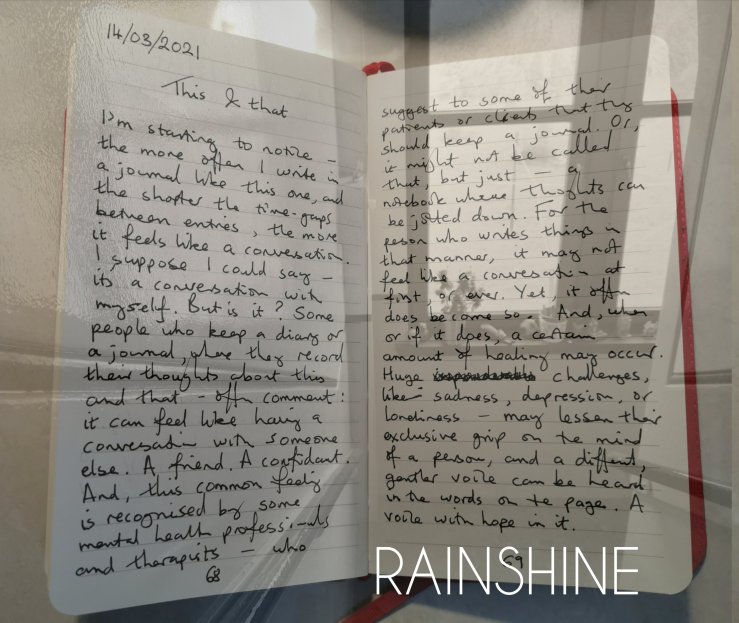 14/03/2021
This & that
I'm starting to notice –
the more often I write in
a journal like this one, and
the shorter the time-gaps
between entries, the more
it feels like a conversation.
I suppose I could say –
its a conversation with
myself. But is it? Some
people who keep a diary or
a journal, where they record
their thoughts about this
and that – often comment:
it can feel like having a
conversation with someone
else. A friend. A confidant.
And, this common feeling
is recognised by some
mental health professionals
and therapists – who
68
suggest to some of their
patients or clients that they
should keep a journal. Or,
it might not be called
that, but just – a
notebook where thoughts can
be jotted down. For the
person who writes things in
that manner, it may not
feel like a conversation at
first, or ever. Yet, it often
does become so. And, when
or if it does, a certain
amount of healing may occur.
Huge challenges,
like sadness, depression, or
loneliness – may lessen their
exclusive grip on the mind
of a person, and a different,
gentler voice can be heard
in the words on the page. A
voice with hope in it.
69
RAINSHINE